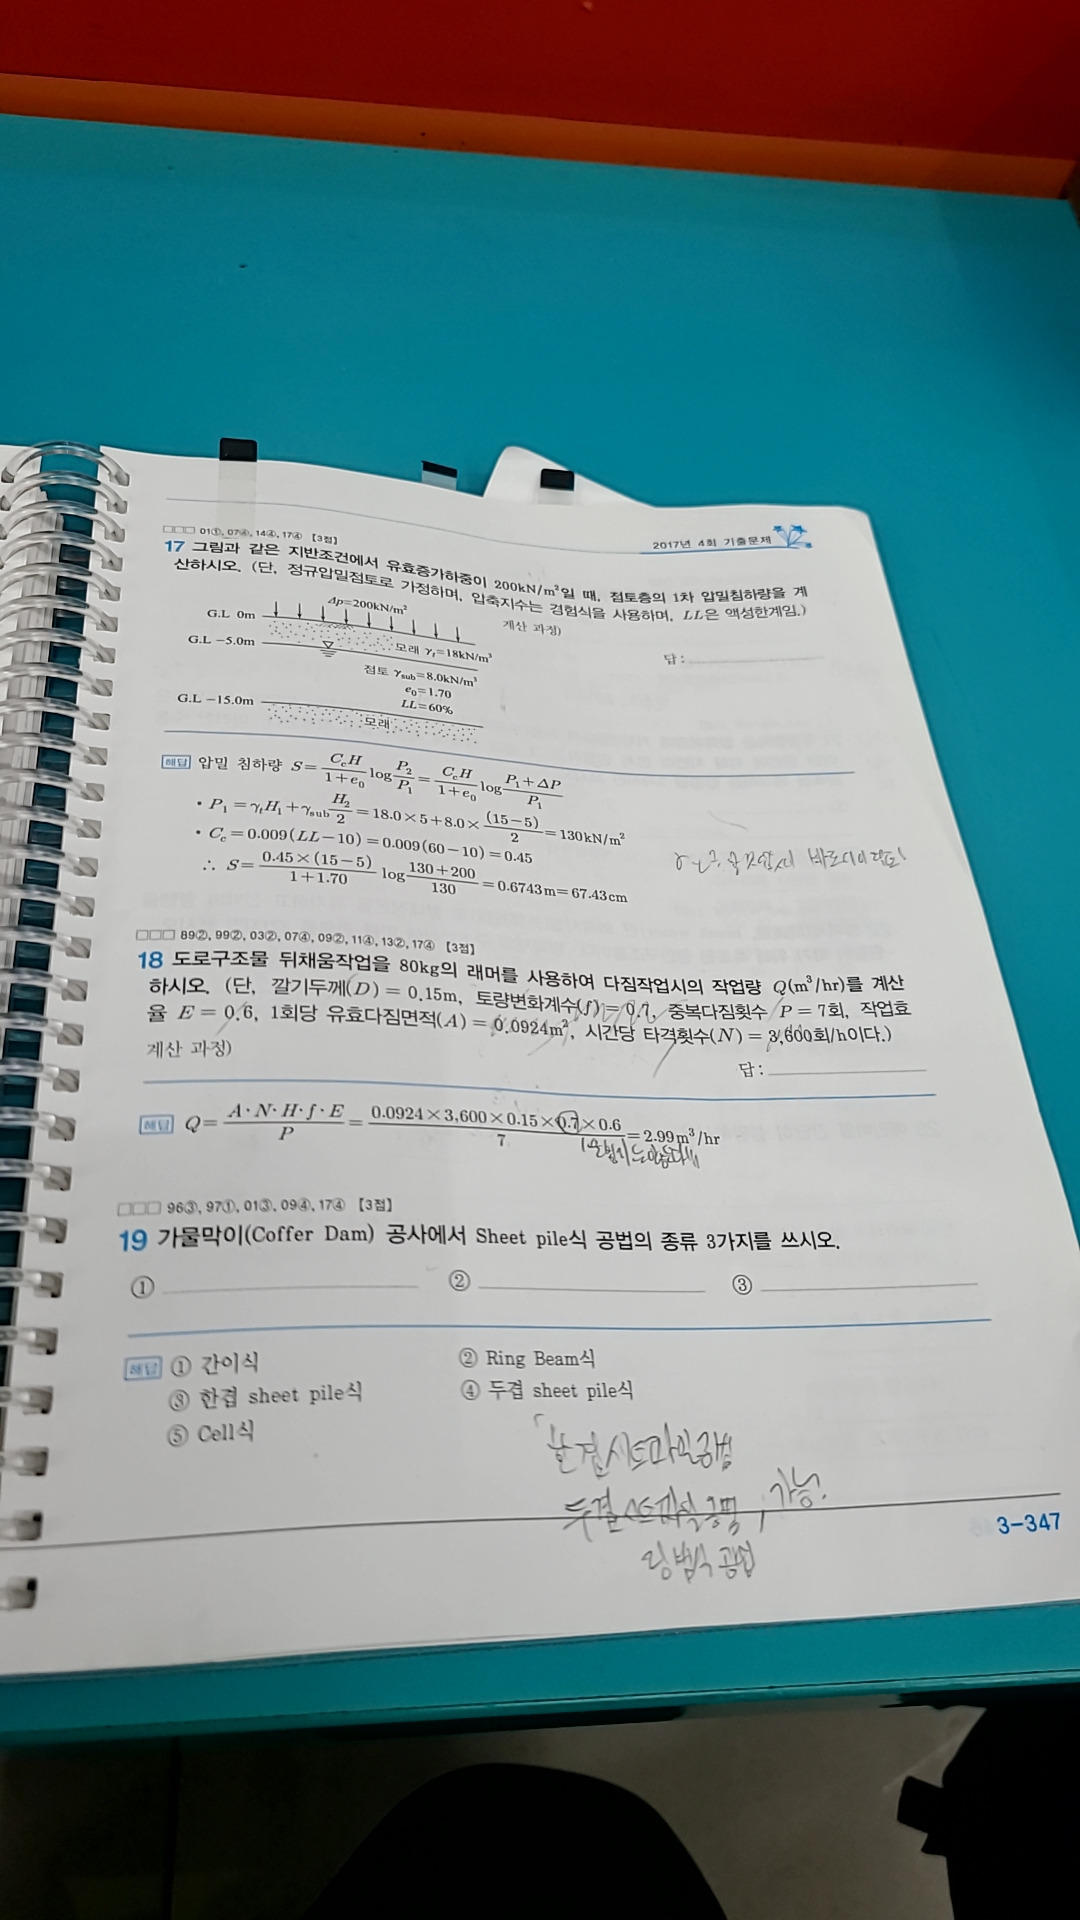 2017년 4회 기출문제
□□□ 01①, 07④, 14④, 17④ 【3점】
17 그림과 같은 지반조건에서 유효증가하중이 200kN/m²일 때, 점토층의 1차 압밀침하량을 계
산하시오. (단, 정규압밀점토로 가정하며, 압축지수는 경험식을 사용하며, LL은 액성한계임.)
계산 과정)
답 :
Δp=200kN/m²
G.L 0m
모래 γt=18kN/m³
G.L −5.0m
점토 γsub=8.0kN/m³
e₀=1.70
LL=60%
G.L −15.0m
모래
해답 압밀 침하량 S = CcH/(1+e₀) log P₂/P₁ = CcH/(1+e₀) log (P₁+ΔP)/P₁
• P₁ = γtH₁ + γsub H₂/2 = 18.0×5+8.0× (15−5)/2 = 130kN/m²
• Cc = 0.009(LL−10) = 0.009(60−10) = 0.45
∴ S = 0.45×(15−5)/(1+1.70) log (130+200)/130 = 0.6743m = 67.43cm
□□□ 89②, 99②, 03②, 07④, 09②, 11④, 13②, 17④ 【3점】
18 도로구조물 뒤채움작업을 80kg의 래머를 사용하여 다짐작업시의 작업량 Q(m³/hr)를 계산
하시오. (단, 깔기두께(D) = 0.15m, 토량변화계수(f) = 0.7, 중복다짐횟수 P = 7회, 작업효
율 E = 0.6, 1회당 유효다짐면적(A) = 0.0924m², 시간당 타격횟수(N) = 3,600회/h이다.)
계산 과정)
답 :
해답 Q = A·N·H·f·E/P = 0.0924×3,600×0.15×0.7×0.6/7 = 2.99m³/hr
□□□ 96③, 97①, 01③, 09④, 17④ 【3점】
19 가물막이(Coffer Dam) 공사에서 Sheet pile식 공법의 종류 3가지를 쓰시오.
① ② ③
해답 ① 간이식 ② Ring Beam식
③ 한겹 sheet pile식 ④ 두겹 sheet pile식
⑤ Cell식
한겹시트파일공법
두겹시트파일공법, 가능.
링빔식 공법
3-347